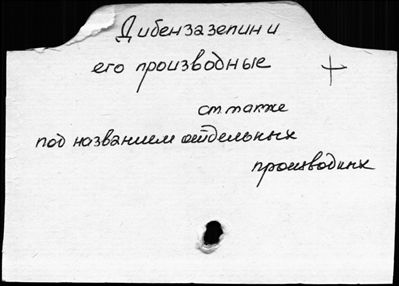 Дибензазепин и
его производные +
см. также
под названием отдельных
производных